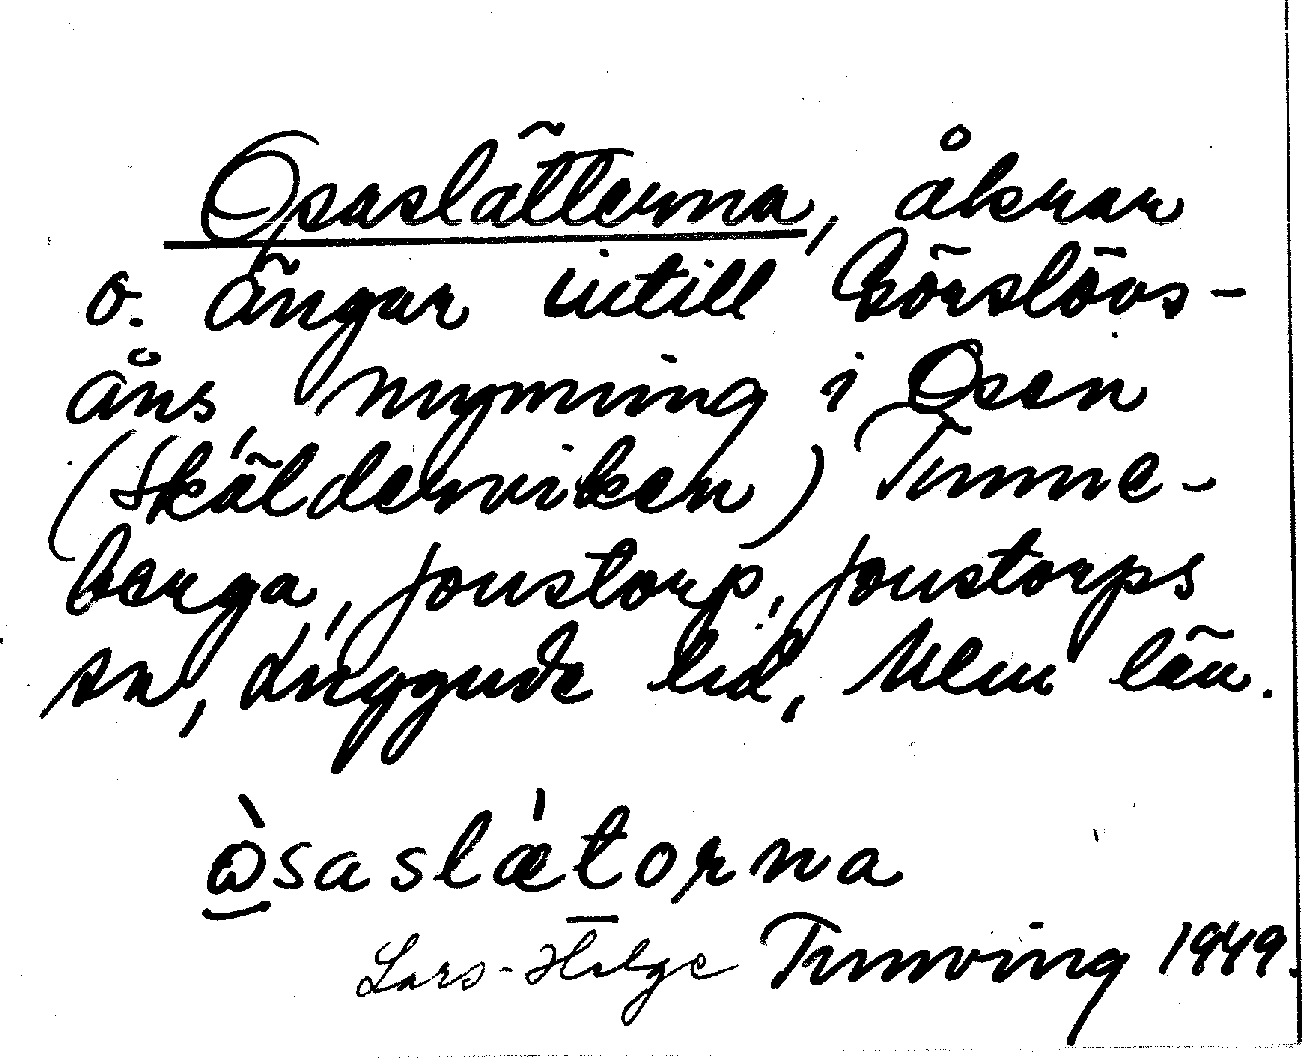 Osaslätterna, åkrar
o. ängar intill Körslövs-
åns mynning i Osen
(Skälderviken) Tunne-
berga, Jonstorp, Jonstorps
sn, Luggude hd, Mlm län.
ò̱saslǽtorna
Lars-Helge Tunving 1949.